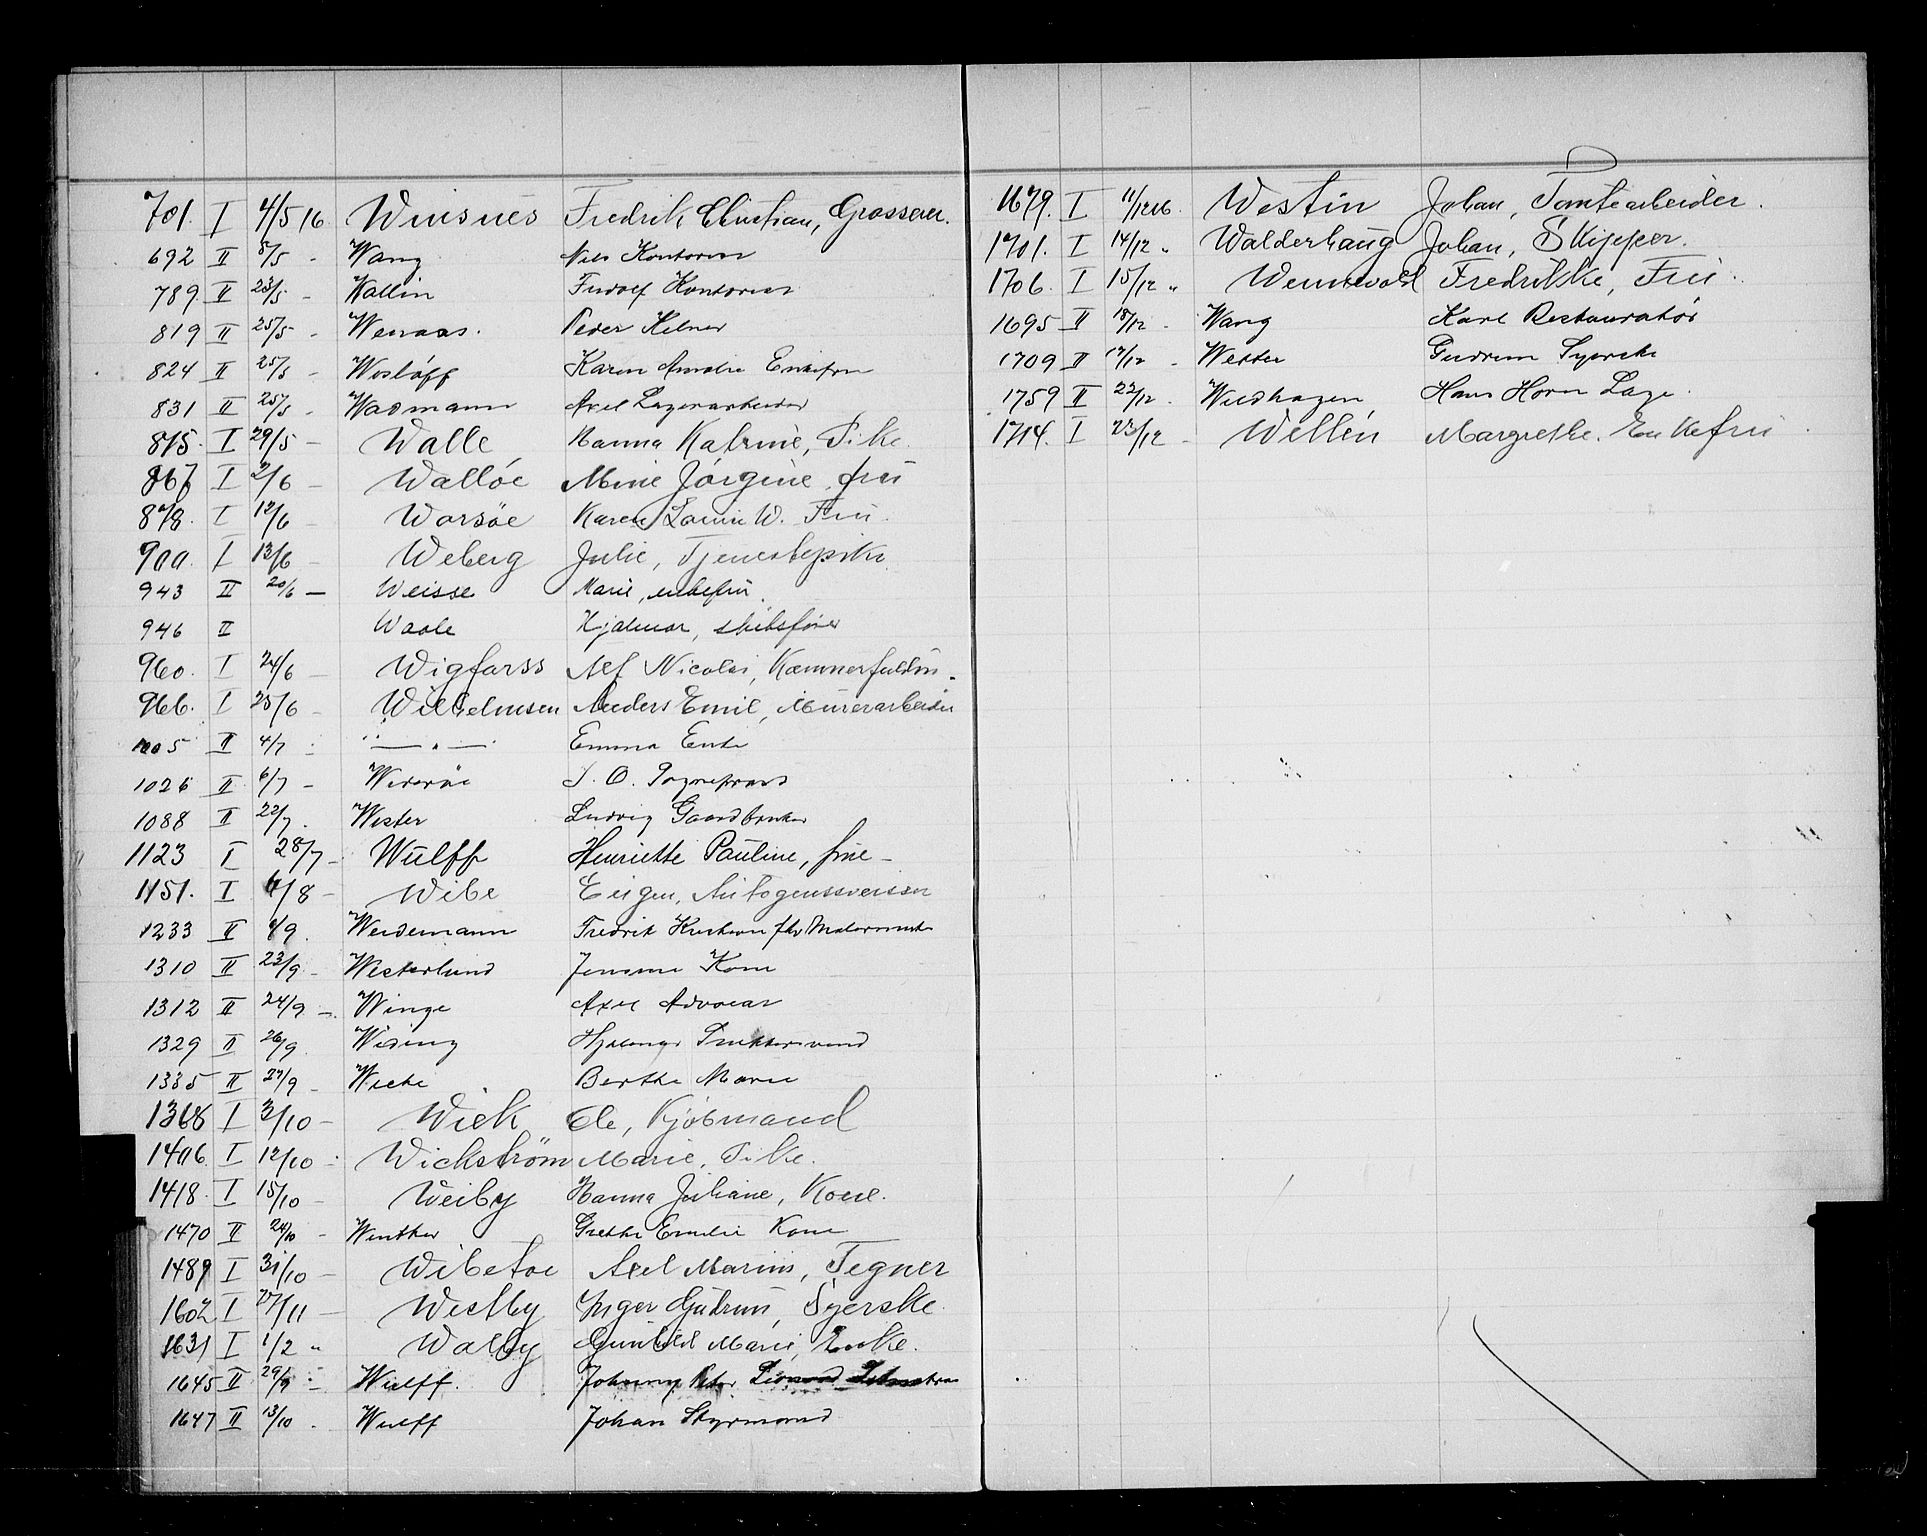 701. I 4/5 16 Winsnes Fredrik Christian, Grosserer.
692 II 8/5 - Wang Nils Kontorist
789 II 23/5 - Wallin Kontorist
819 II 25/5 - Wenaas. Peder Kelner
824 II 25/5 - Wisløff Karen Amalie Enkefru
831 II 25/5 - Wadmann Axel Lagerarbeider
875. I 29/5 - Walle Hanna Katrine, Pike.
867 I 2/6 - Walløe Mine Jørgine, fru
878. I 12/6 - Worsøe Karen W. Fru.
900. I 13/6 - Weberg Julie, Tjenestepike
943 II 20/6 - Weisse Marie, enkefru.
946 II Waale Hjalmar, skibsfører
960. I 24/6 - Wigfarss Alf Nicolai, Kæmnerfuldm.
966. I 25/6 - Wilhelmsen Anders Emil, Murerarbeider
1005 II 4/7 - " — . — Emma Enke
1026 II 6/7 - Widerøe J. O. Sogneprest
1088 II 22/7. Wister Ludvig Gaardbruker
1123 I 28/7 - Wulff Henriette Pauline, frue -
1151. I 4/8 - Wibe Eugen, Autogensveiser
1233 II 4/9. Weidemann Fredrik Kristian fhv Malermester
1310 II 23/9 - Westerlund Kone
1312 II 24/9 -. Winge Axel Advocat
1329 II 26/9. Widing Hjalmar
1335 II 27/9 - Wiche. Berthe Marie
1368 I 3/10 - Wiek Ole, Kjøbmand
1406. I 12/10 - Wickstrøm Marie, Pike.
1418. I 15/10 - Weiby Hanna Juliane, Kone.
1470 II 24/10 - Winther Grethe Emilie Kone
1489 I 31/10 - Wibetoe Axel Marius, Tegner
1602 I 27/11 - Westby Inger Gudrun, Syerske.
1631 I 1/2 " Walby Gunhild Marie, Enke.
1645 II 29/9 - Wulff. Johnny Peter
1647 II 13/10. Wulff Johan Styrmand
1679. I 11/12 16. Westin Johan, Tomtearbeider.
1701. I 14/12 " Walderhaug Johan, Skipper.
1706. I 15/12 " Wennevold Fredrikke, Fru.
1695 II 18/12 - Wang Karl Restauratør
1709 II 17/12 - Wester Gudrun Syerske
1759 II 22/12. Wiedhagen Hans Horn Lage.
1714. I 23/12 - Wellén Margrethe. Enkefru.